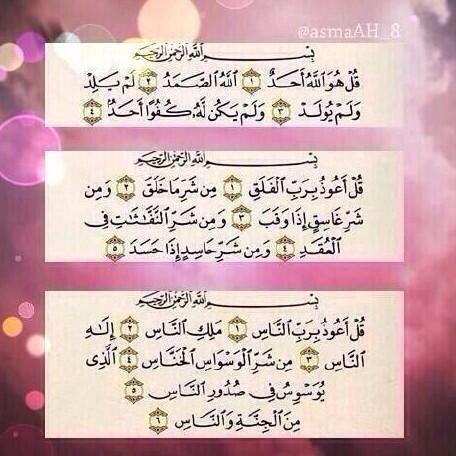 @asmaAH_8
بِسْمِ ٱللَّهِ ٱلرَّحْمَٰنِ ٱلرَّحِيمِ
قُلْ هُوَ ٱللَّهُ أَحَدٌ ١ ٱللَّهُ ٱلصَّمَدُ ٢ لَمْ يَلِدْ
وَلَمْ يُولَدْ ٣ وَلَمْ يَكُن لَّهُۥ كُفُوًا أَحَدٌۢ ٤
بِسْمِ ٱللَّهِ ٱلرَّحْمَٰنِ ٱلرَّحِيمِ
قُلْ أَعُوذُ بِرَبِّ ٱلْفَلَقِ ١ مِن شَرِّ مَا خَلَقَ ٢ وَمِن
شَرِّ غَاسِقٍ إِذَا وَقَبَ ٣ وَمِن شَرِّ ٱلنَّفَّٰثَٰتِ فِى
ٱلْعُقَدِ ٤ وَمِن شَرِّ حَاسِدٍ إِذَا حَسَدَ ٥
بِسْمِ ٱللَّهِ ٱلرَّحْمَٰنِ ٱلرَّحِيمِ
قُلْ أَعُوذُ بِرَبِّ ٱلنَّاسِ ١ مَلِكِ ٱلنَّاسِ ٢ إِلَٰهِ
ٱلنَّاسِ ٣ مِن شَرِّ ٱلْوَسْوَاسِ ٱلْخَنَّاسِ ٤ ٱلَّذِى
يُوَسْوِسُ فِى صُدُورِ ٱلنَّاسِ ٥
مِنَ ٱلْجِنَّةِ وَٱلنَّاسِ ٦